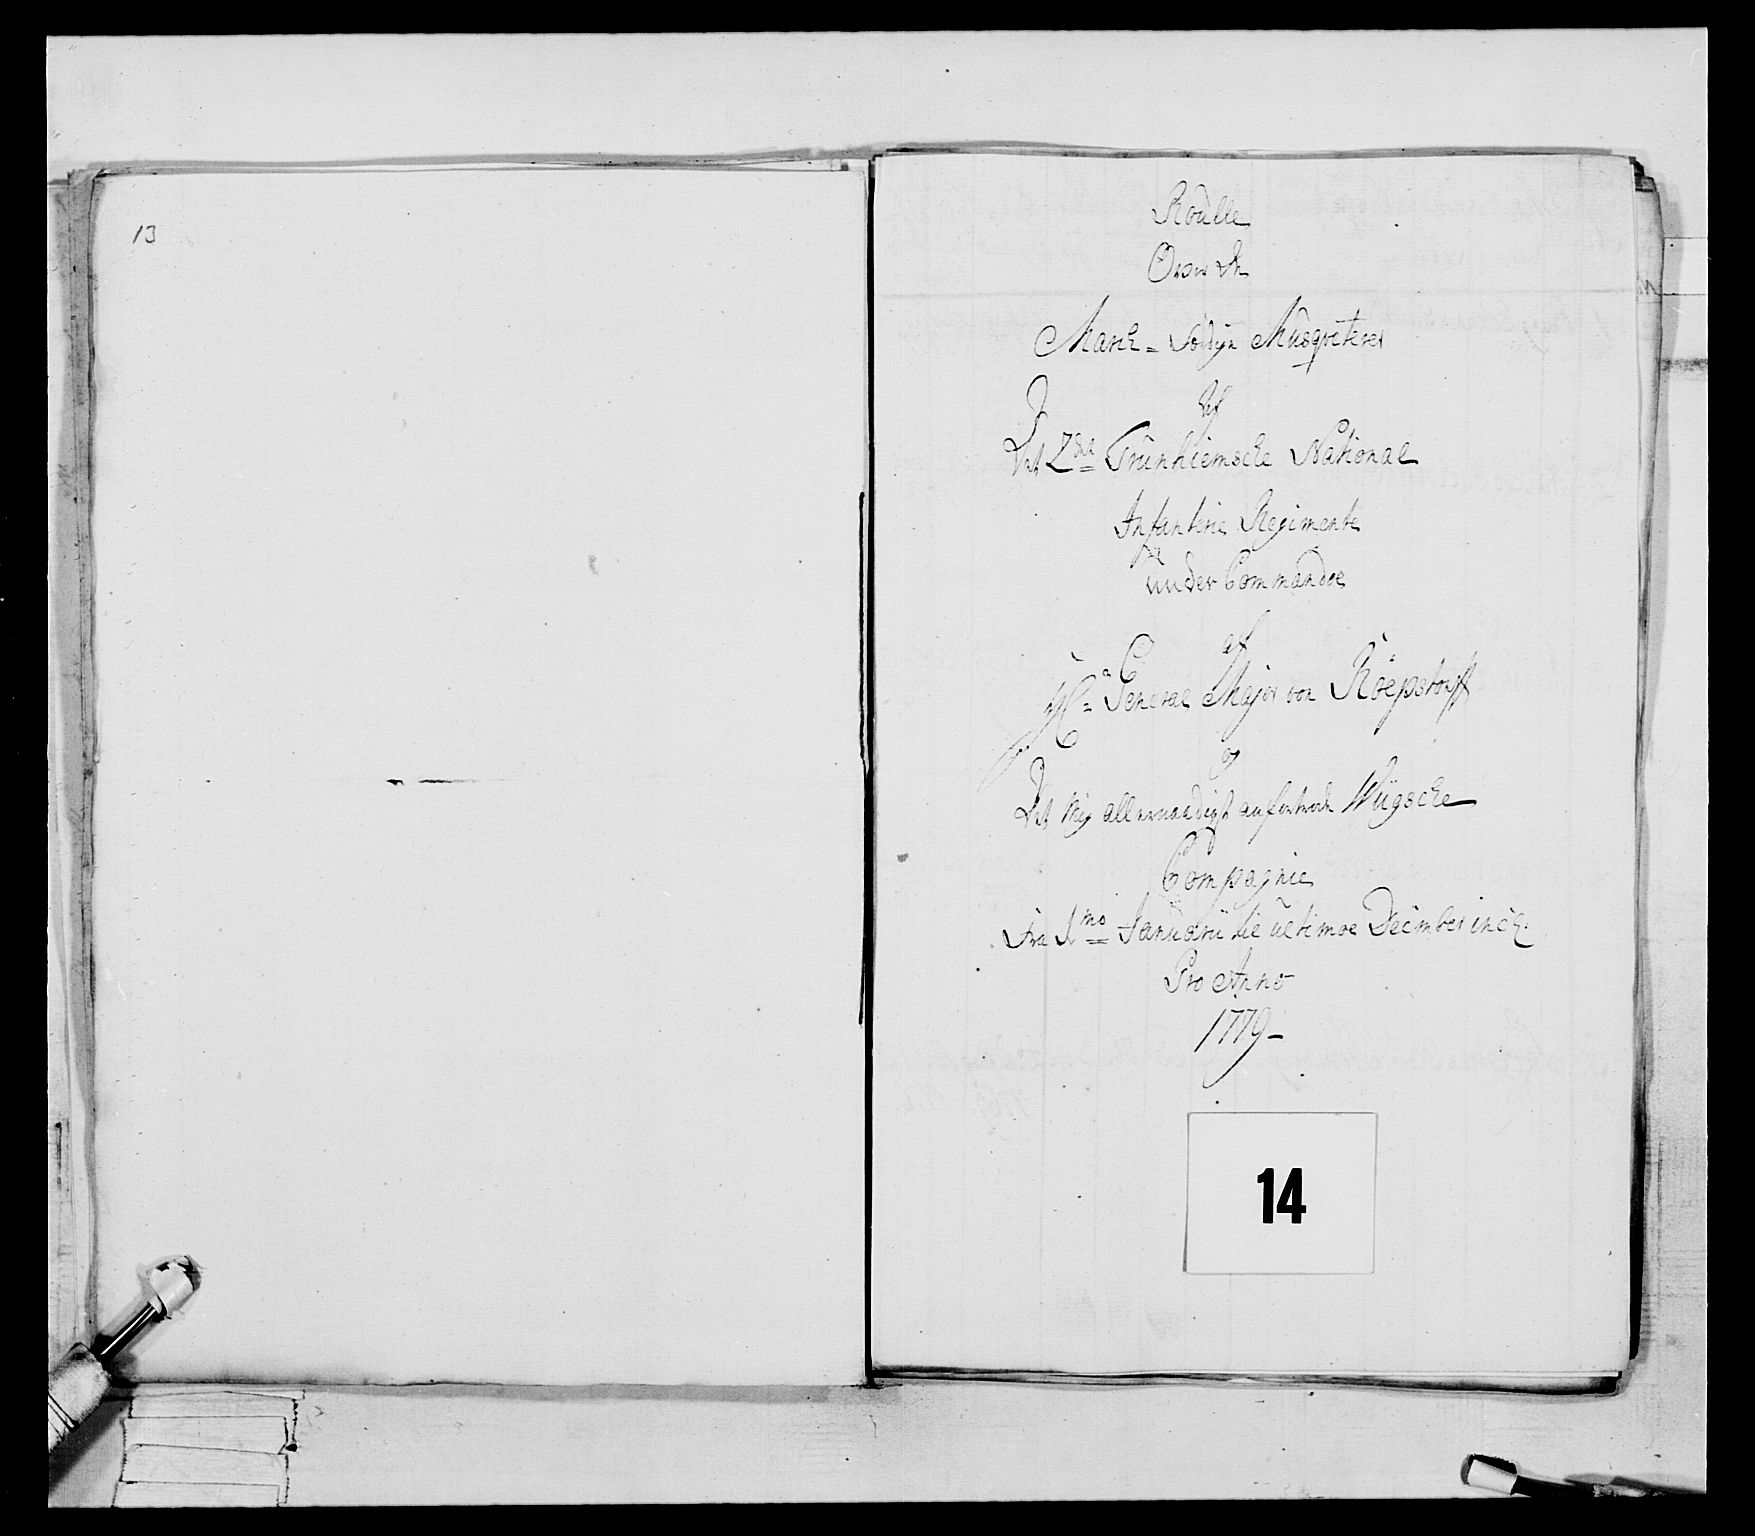 13
Roulle
Over de
March-Færdige Musqveterer
Af
Det 2det Trunhiemsche National
Infanterie Regimente
under Commandoe
af
Hr. General Major von Röepstorff
og
Det Mig allernaadigst anfortroede Wügsche
Compagnie
Fra 1mo Januarii til ultimoe December incl.
Pro Anno
1779-
14